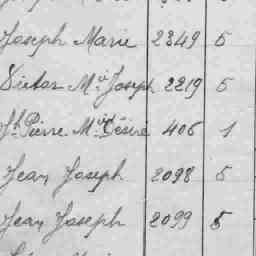 Joseph Marie 2349 5
Victor Mie Joseph 2219 5
Jh Pierre Mie Désiré 406 1
Jean Joseph 2098 5
Jean Joseph 2099 5